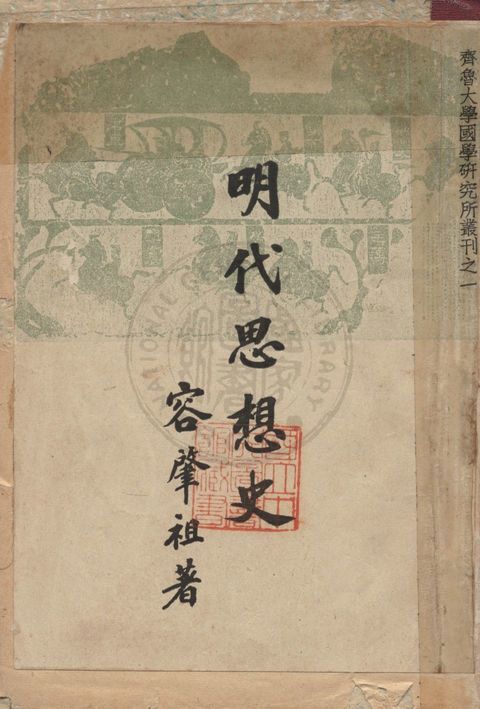 齊魯大學國學研究所叢刊之一
明代思想史
容肇祖著
NATIONAL
LIBRARY